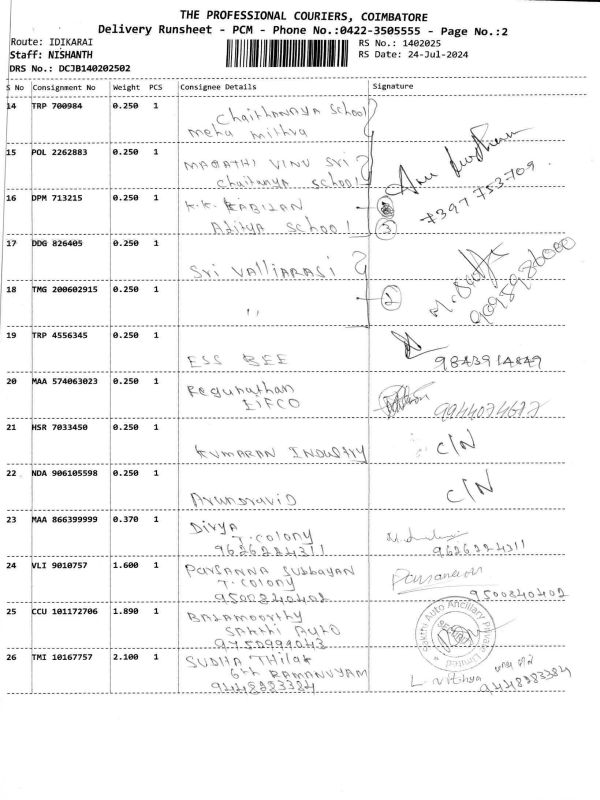 THE PROFESSIONAL COURIERS, COIMBATORE
Delivery Runsheet - PCM - Phone No.:0422-3505555 - Page No.:2
Route: IDIKARAI
RS No.: 1402025
Staff: NISHANTH
RS Date: 24-Jul-2024
DRS No.: DCJB140202502
S No Consignment No Weight PCS Consignee Details Signature
14 TRP 700984 0.250 1 Chaithannya School
Meha Mithra
15 POL 2262883 0.250 1 MAGATHI VINU SRI
Chaitanya School
16 DPM 713215 0.250 1 K.K. KABILAN
Aditya School
3
7397 753709
17 DDG 826405 0.250 1
Sri Valliarasi
18 TMG 200602915 0.250 1 2
9095986000
''
19 TRP 4556345 0.250 1
ESS BEE 9843914849
20 MAA 574063023 0.250 1 Regunathan
EIFCO 9944024612
21 HSR 7033450 0.250 1 C/N
KUMARAN INDUSTRY
22 NDA 906105598 0.250 1 C/N
23 MAA 866399999 0.370 1 Divya
T. Colony
9626224311 9626224311
24 VLI 9010757 1.600 1 Parsanna Subbayan
T. Colony
9500840402 9500840402
25 CCU 101172706 1.890 1 Balamoorthy
Sakthi Auto
9750999043
Sakthi Auto Ancillary Private Limited
26 TMI 10167757 2.100 1 SUDHA Thilak
6th RAMANUYAM
9448283384 9448283384